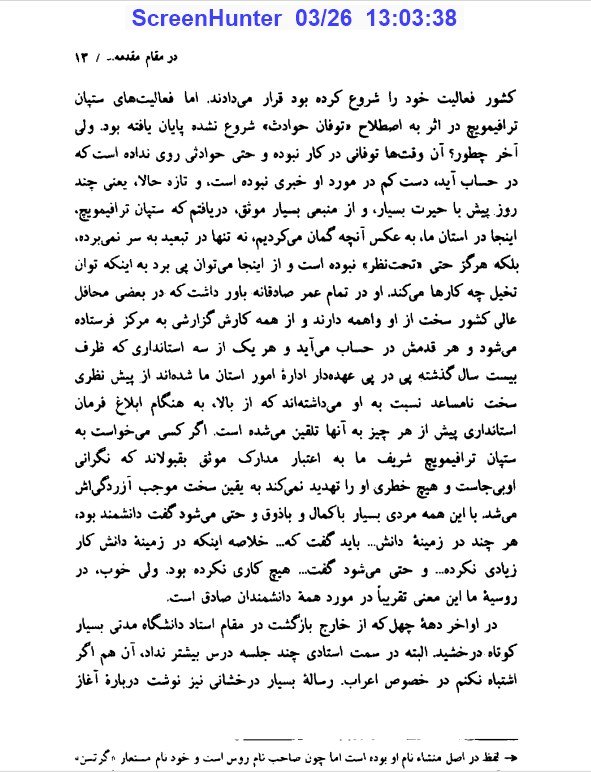 ScreenHunter 03/26 13:03:38
در مقام مقدمه... / ۱۳
کشور فعالیت خود را شروع کرده بود قرار می‌دادند. اما فعالیت‌های ستپان
ترافیمویچ در اثر به اصطلاح «توفان حوادث» شروع نشده پایان یافته بود. ولی
آخر چطور؟ آن وقت‌ها توفانی در کار نبوده و حتی حوادثی روی نداده است که
در حساب آید، دست کم در مورد او خبری نبوده است، و تازه حالا، یعنی چند
روز پیش با حیرت بسیار، و از منبعی بسیار موثق، دریافتم که ستپان ترافیمویچ،
اینجا در استان ما، به عکس آنچه گمان می‌کردیم، نه تنها در تبعید به سر نمی‌برده،
بلکه هرگز حتی «تحت‌نظر» نبوده است و از اینجا می‌توان پی برد به اینکه توان
تخیل چه کارها می‌کند. او در تمام عمر صادقانه باور داشت که در بعضی محافل
عالی کشور سخت از او واهمه دارند و از همه کارش گزارشی به مرکز فرستاده
می‌شود و هر قدمش در حساب می‌آید و هر یک از سه استانداری که ظرف
بیست سال گذشته پی در پی عهده‌دار ادارهٔ امور استان ما شده‌اند از پیش نظری
سخت نامساعد نسبت به او می‌داشته‌اند که از بالا، به هنگام ابلاغ فرمان
استانداری پیش از هر چیز به آنها تلقین می‌شده است. اگر کسی می‌خواست به
ستپان ترافیمویچ شریف ما به اعتبار مدارک موثق بقبولاند که نگرانی
اوبی‌جاست و هیچ خطری او را تهدید نمی‌کند به یقین سخت موجب آزردگی‌اش
می‌شد. با این همه مردی بسیار باکمال و باذوق و حتی می‌شود گفت دانشمند بود،
هر چند در زمینهٔ دانش... باید گفت که... خلاصه اینکه در زمینهٔ دانش کار
زیادی نکرده... و حتی می‌شود گفت... هیچ کاری نکرده بود. ولی خوب، در
روسیهٔ ما این معنی تقریباً در مورد همهٔ دانشمندان صادق است.
در اواخر دههٔ چهل که از خارج بازگشت در مقام استاد دانشگاه مدتی بسیار
کوتاه درخشید. البته در سمت استادی چند جلسه درس بیشتر نداد، آن هم اگر
اشتباه نکنم در خصوص اعراب. رسالهٔ بسیار درخشانی نیز نوشت دربارهٔ آغاز
← لفظ در اصل منشاء نام او بوده است اما چون صاحب نام روس است و خود نام مستعار «گرتسن»